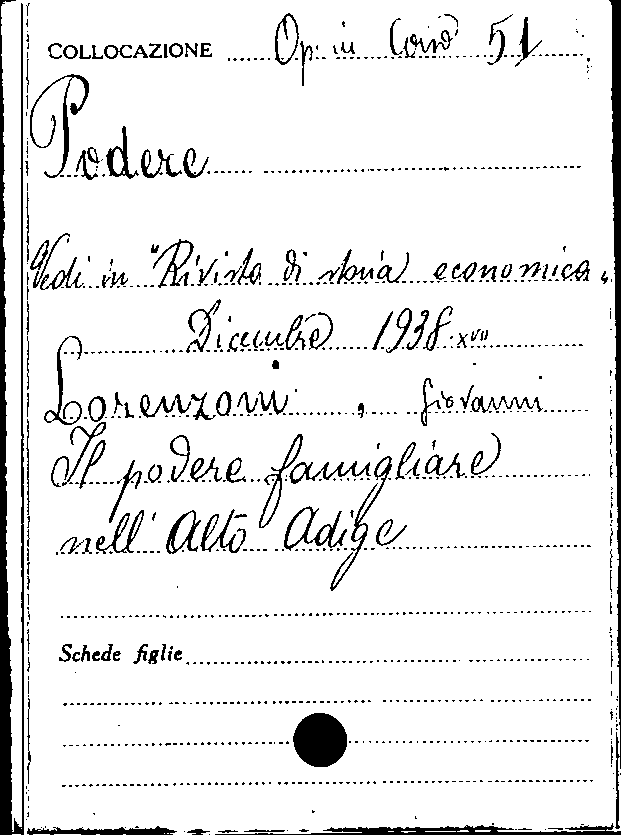 COLLOCAZIONE Op. in Corso 51
Podere
Vedi in "Rivista di storia economica"
Dicembre 1938 XVII
Lorenzoni, Giovanni
Il podere famigliare
nell' Alto Adige
Schede figlie